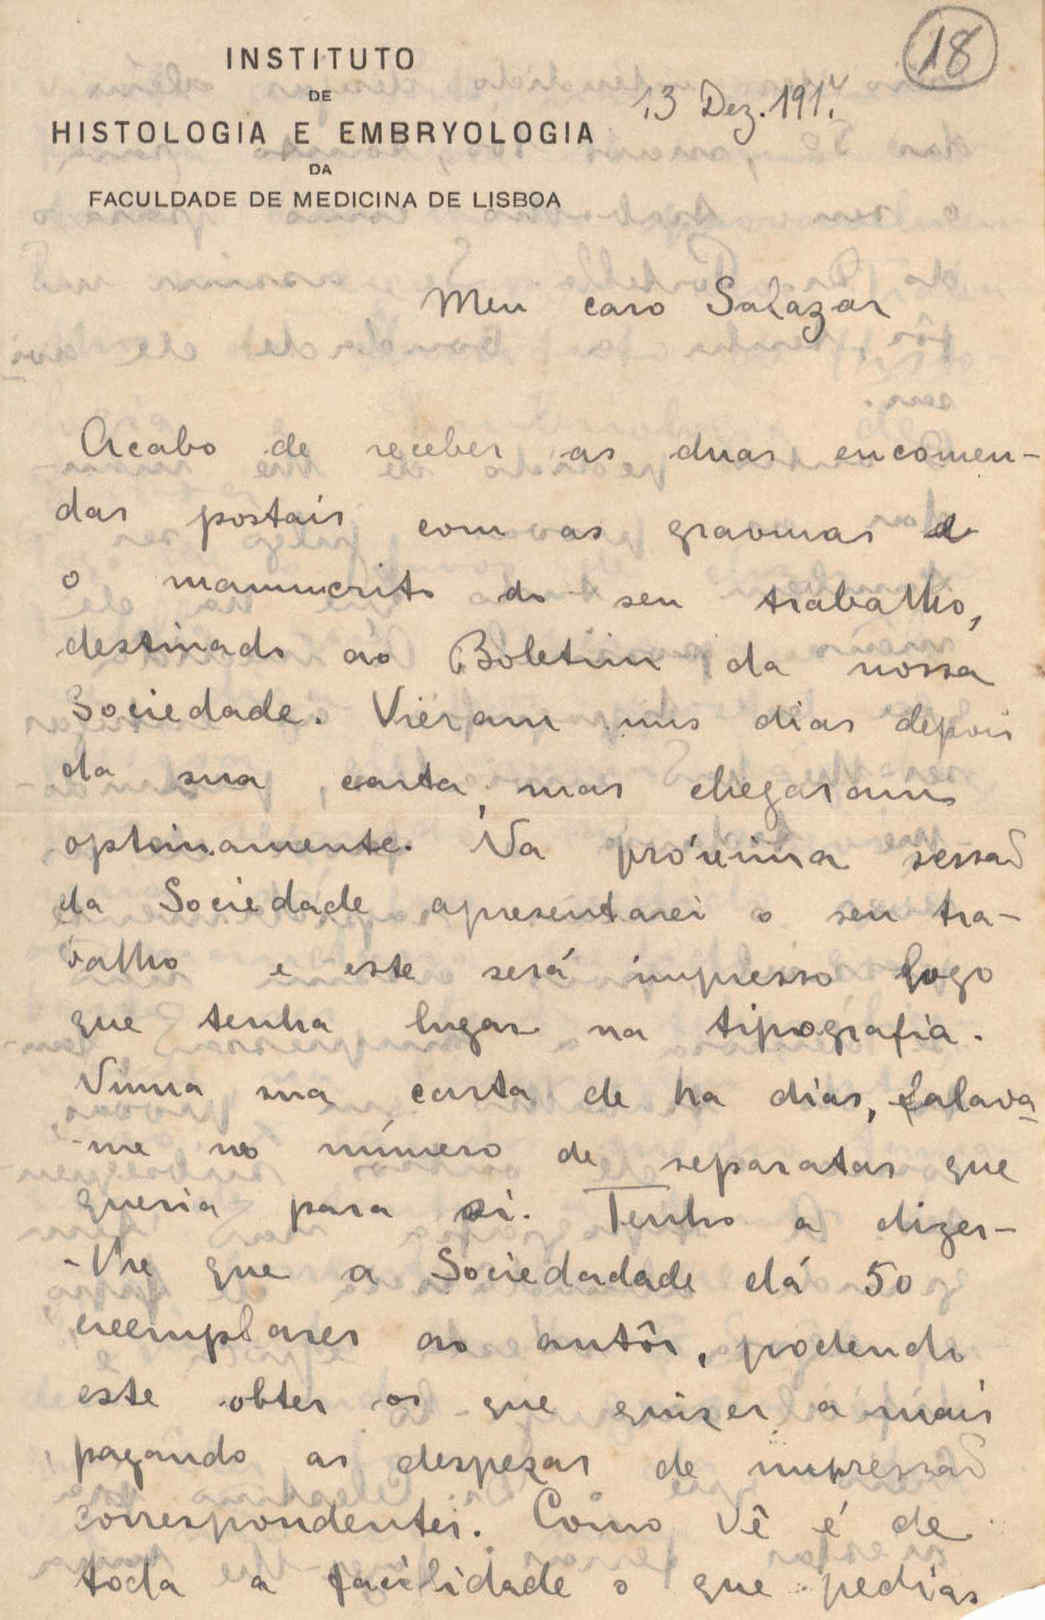 18
INSTITUTO
DE
HISTOLOGIA E EMBRYOLOGIA
DA
FACULDADE DE MEDICINA DE LISBOA
13 Dez. 191
Meu caro Salazar
Acabo de receber as duas encomen-
das postais com as gravuras e
o manuscrito do seu trabalho,
destinado ao Boletim da nossa
Sociedade. Vieram uns dias depois
da sua carta, mas chegaram
optimamente. Na próxima sessão
da Sociedade apresentarei o seu tra-
balho e este será impresso logo
que tenha lugar na tipografia.
Numa sua carta de ha dias, falava-
-me no número de separatas que
queria para si. Tenho a dizer-
-lhe que a Sociedadade dá 50
exemplares ao autôr, podendo
este obter os que quizer a mais
pagando as despezas de impressão
correspondentes. Como vê é de
toda a facilidade o que pedias